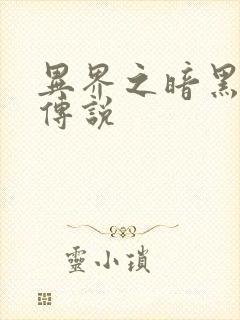 異界之暗黑
傳說
靈小瑣